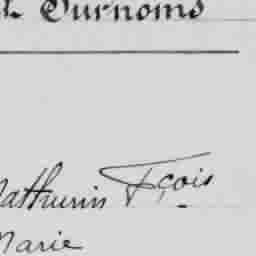 & Surnoms
Mathurin Fçois
Marie